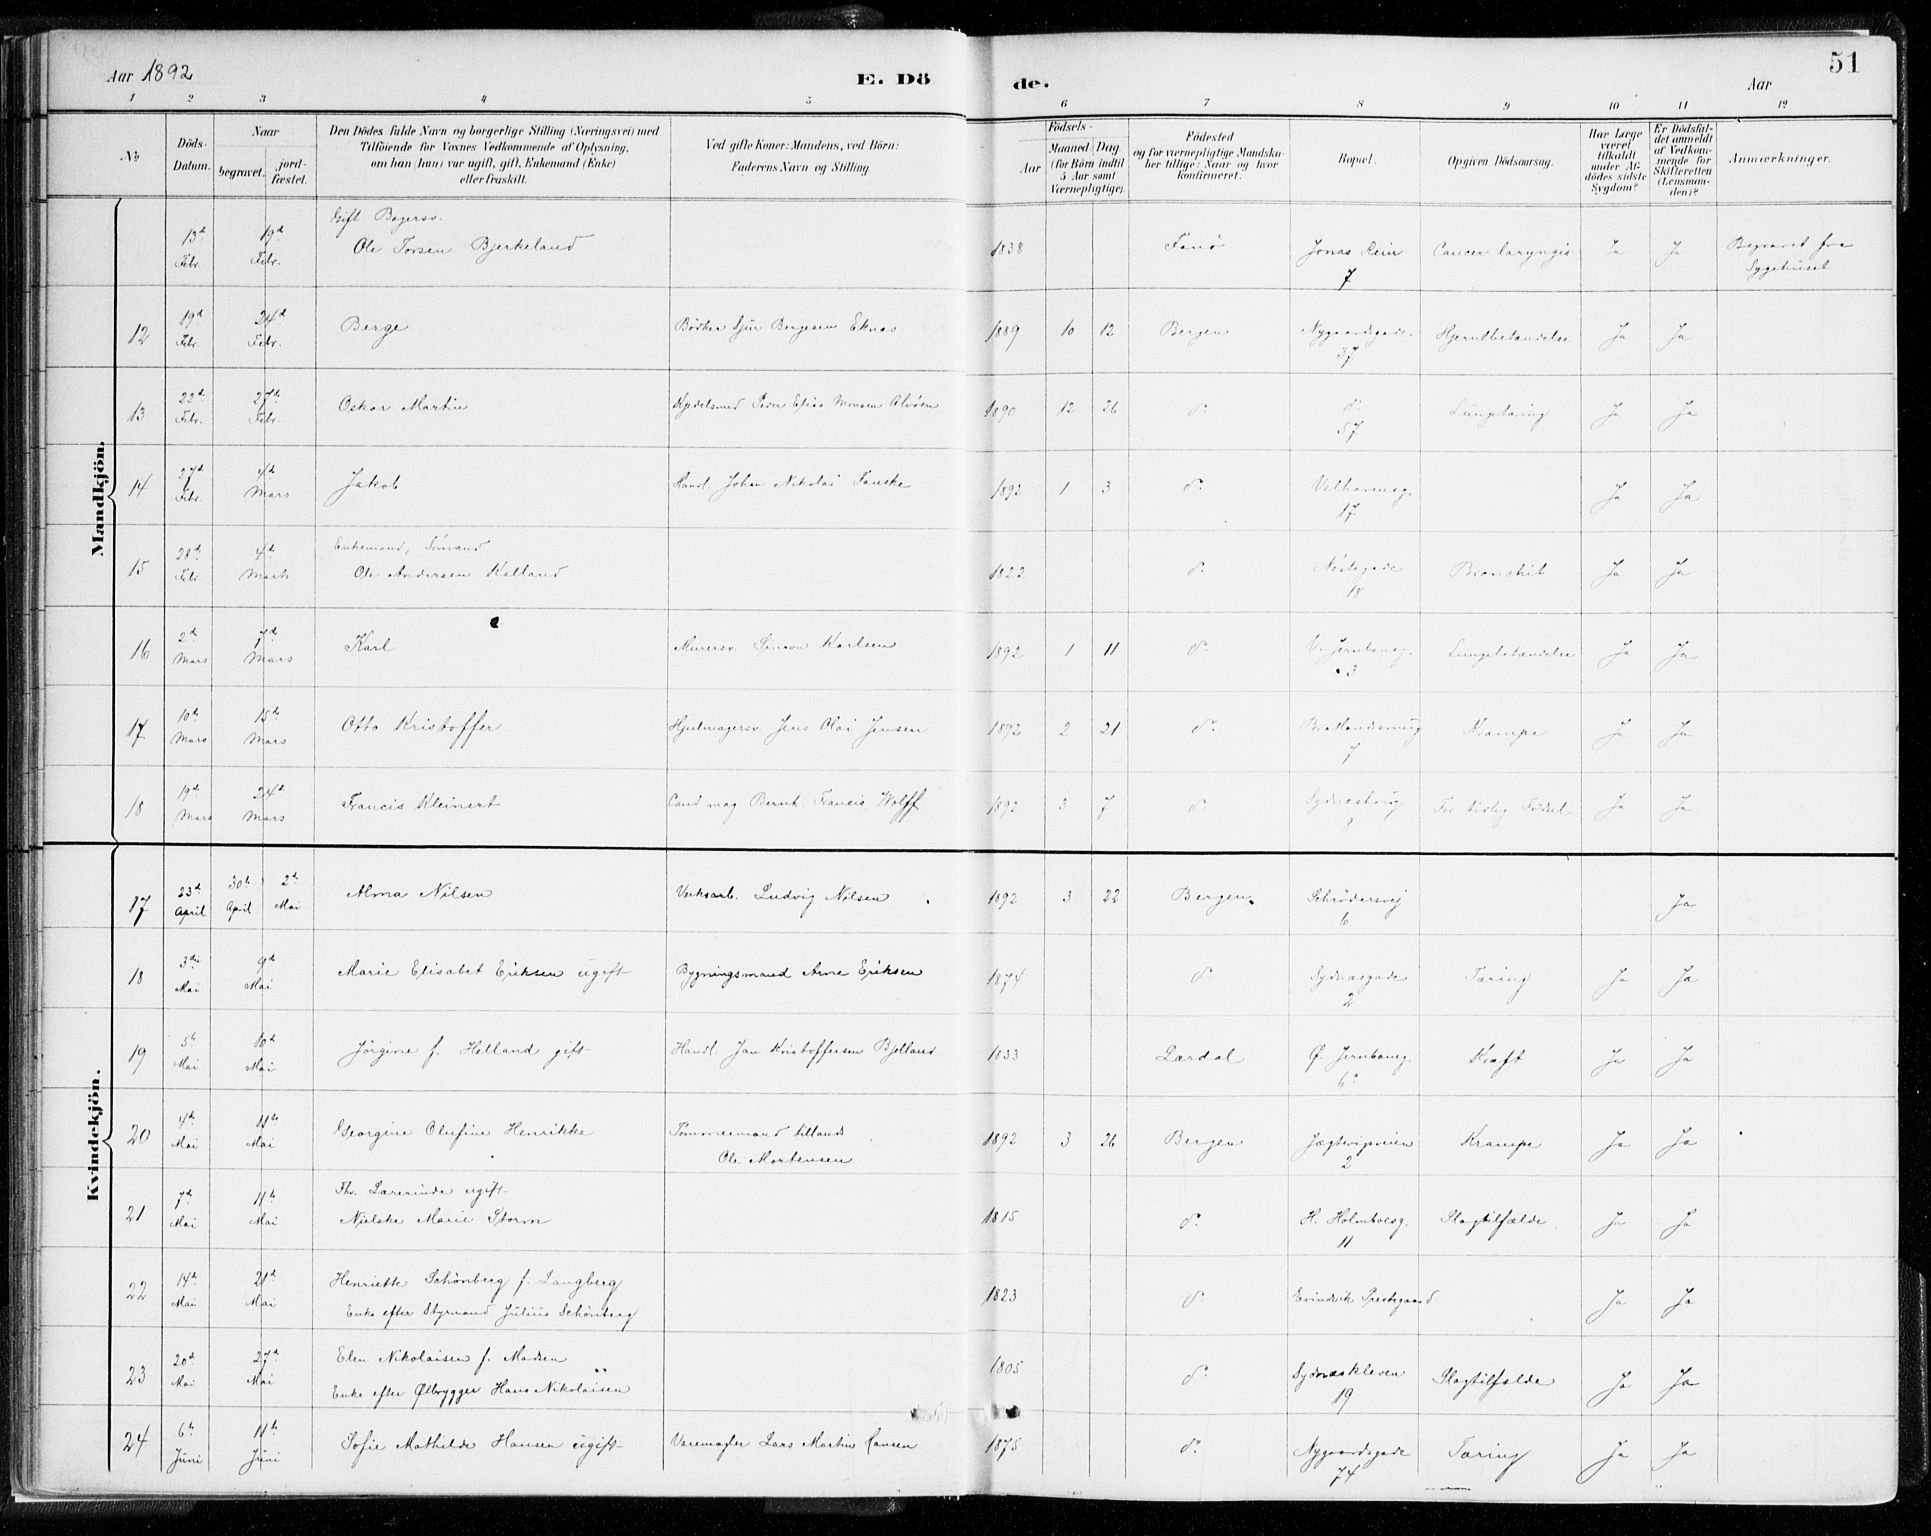 Aar 1892
E. Döde.
Aar
51
1 2 3 4 5 6 7 8 9 10 11 12
№
Döds-Datum.
Naar
begravet.
jord-fæstet.
Den Dödes fulde Navn og borgerlige Stilling (Næringsvei) med
Tilföiende for Voxnes Vedkommende af Oplysning,
om han (hun) var ugift, gift, Enkemand (Enke)
eller fraskilt.
Ved gifte Koner: Mandens, ved Börn:
Faderens Navn og Stilling.
Födsels-
Aar
Maaned Dag
(for Börn indtil
5 Aar samt
Værnepligtige).
Födested
og for værnepligtige Mandska-
ber tillige: Naar og hvor
konfirmeret.
Bopæl.
Opgiven Dödsaarsag.
Har Læge
været
tilkaldt
under Af-
dödes sidste
Sygdom?
Er Dödsfal-
det anmeldt
af Vedkom-
mende for
Skifteretten
(Lensman-
den)?
Anmærkninger.
Mandkjön.
13de Febr. 19de Febr. Gift Bagersv.
Ole Torsen Bjerkeland 1838 Fanø Jonas Reins 7 Cancer laryngis Ja Ja Begravet fra
Sygehuset
12 19de Febr. 24de Febr. Berge Bödker Sjur Bergesen Eknes 1889 10 12 Bergen Nygaardsgade 37 Hjernebetændelse Ja Ja
13 22de Febr. 27de Febr. Oskar Martin Kjedelsmed Peder Elias Monsen Alvöen 1890 12 26 do do 57 Lungetæring Ja Ja
14 27de Febr. 4de Mars Jakob Handl. Johan Nikolai Fancke 1892 1 3 do Welhavensg. 17 Ja Ja
15 28de Febr. 4de Marts Enkemand, Sömand
Ole Andersen Kalland 1822 do Nöstegade 18 Bronchit Ja Ja
16 2de Mars 7de Mars Karl Murersv. Simon Karlsen 1892 1 11 do V. Jernbaneg. 3 Lungebetændelse Ja Ja
17 10de Mars 15de Mars Otto Kristoffer Hjulmagersv. Jens Olai Jensen 1892 2 21 do 7 Krampe Ja Ja
18 19de Mars 24de Mars Francis Kleinert Cand mag Bernt Francis Wolff 1892 3 7 do Sydnæshaug 8 For tidlig Födsel Ja Ja
Kvindekjön.
17 23de April 30te April 2de Mai Alma Nilsen Verksarb. Ludvig Nilsen 1892 3 22 Bergen Schrödersvej 6 Ja
18 3die Mai 9de Mai Marie Elisabet Eriksen ugift Bygningsmand Arne Eriksen 1874 do Sydnæsgade 2 Tæring Ja Ja
19 5te Mai 10de Mai Jörgine f. Helland gift Handl. Jan Kristoffersen Bjelland 1833 Lærdal Ø Jernbaneg. 6a Kræft Ja Ja
20 4de Mai 11te Mai Georgine Olufine Henrikke Tömmermand tillands
Ole Mortensen 1892 3 26 Bergen Jægtevigveien 2 Krampe Ja Ja
21 7de Mai 11te Mai Fhv. Lærerinde ugift
Nielske Marie Storm 1815 do H. Holmboesg. 11 Slagtilfælde Ja Ja
22 14de Mai 21de Mai Henriette Schönberg f. Langberg
Enke efter Styrmand Julius Schönberg 1823 do Evindvik Prestegaard Ja Ja
23 20de Mai 27de Mai Elen Nikolaisen f. Madsen
Enke efter Ølbrygger Hans Nikolaisen 1805 do Sydnæskleven 19 Slagtilfælde Ja Ja
24 6te Juni 11te Juni Sofie Mathilde Hansen ugift Varemægler Lars Martin Hansen 1875 do Nygaardsgade 74 Tæring Ja Ja